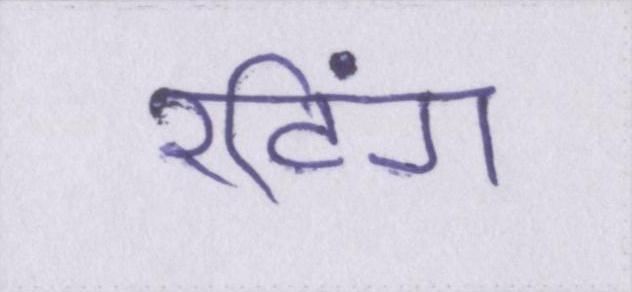 रटिंग